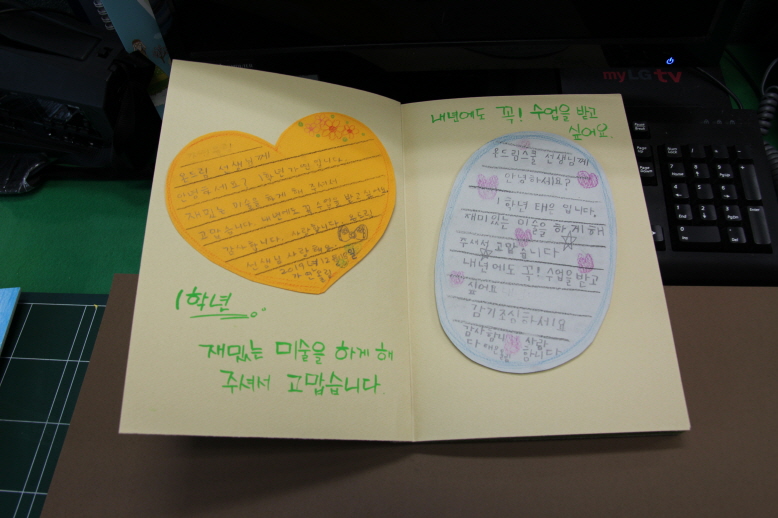 우드림 선생님께
안녕하세요? 1학년 가민입니다
재밌는 미술을 하게 해 주셔서
고맙습니다. 내년에도 꼭 수업을 받고싶어요.
감사합니다. 사랑합니다.
선생님 사랑해요
2019년 12월
1학년.
재밌는 미술을 하게 해
주셔서 고맙습니다.
내년에도 꼭! 수업을 받고
싶어요.
우드림스쿨 선생님께
안녕하세요?
1학년 태은 입니다.
재미있는 미술을 하게해
주셔서 고맙습니다
내년에도 꼭! 수업을 받고
싶어요
감기조심하세요
감사합니다 사랑
합니다
myLGtv